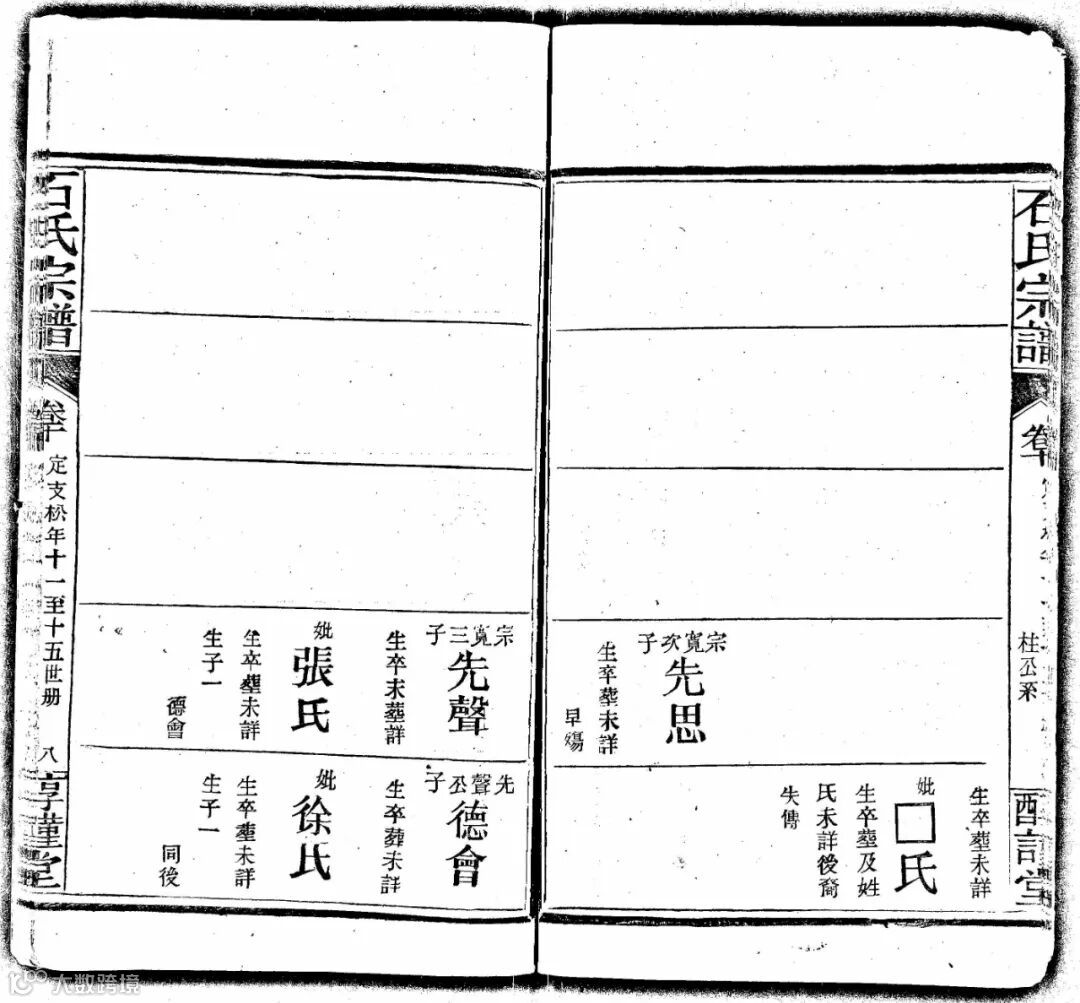 石氏宗譜
桂公系
宗寬次子
先思
生卒葬未詳
早殤
生卒葬未詳
妣
□氏
生卒葬及姓
氏未詳後裔
失傳
宗寬三子
先聲
生卒未葬詳
妣
張氏
生卒葬未詳
生子一
德會
先聲公子
德會
生卒葬未詳
妣
徐氏
生卒葬未詳
生子一
同後
石氏宗譜
定支松年十一至十五世册
八
大数跨境